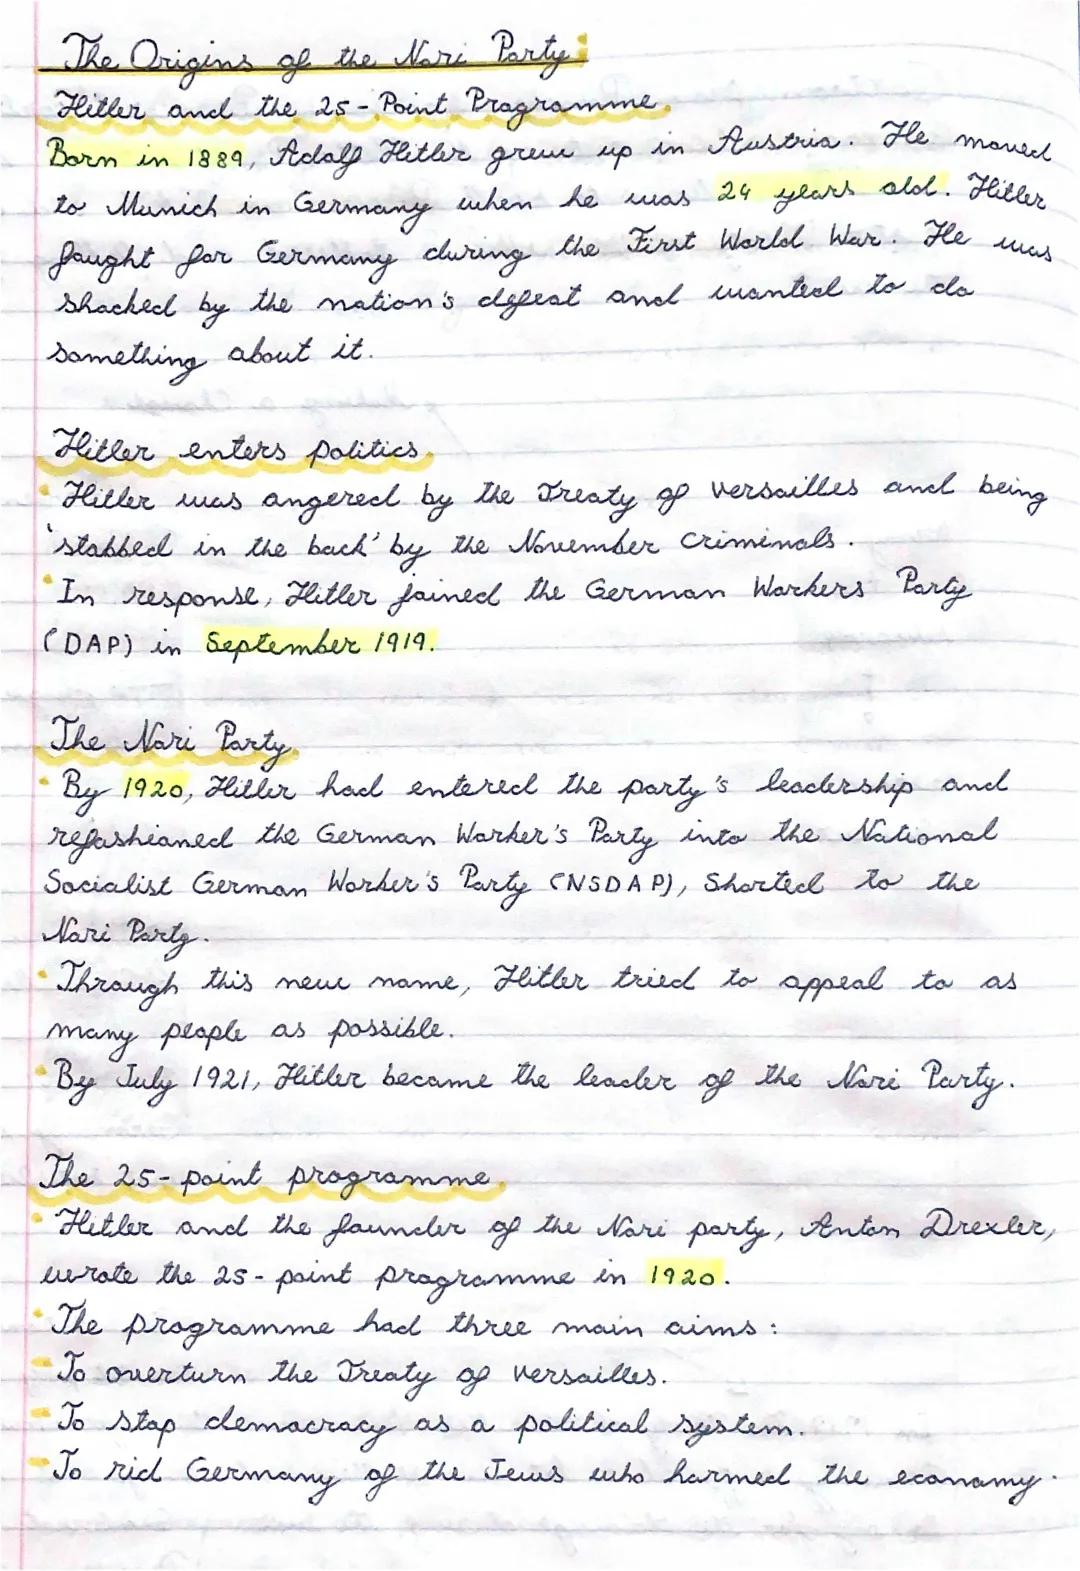 The Origins of the Nazi Party:
Hitler and the 25-Point Programme.
Born in 1889, Adolf Hitler grew up in Austria. He moved
to Munich in Germany when he was 24 years old. Hitler
fought for Germany during the First World War. He was
shocked by the nation's defeat and wanted to do
something about it.
Hitler enters politics.
• Hitler was angered by the Treaty of Versailles and being
'stabbed in the back' by the November Criminals.
• In response, Hitler joined the German Workers Party
(DAP) in September 1919.
The Nazi Party.
• By 1920, Hitler had entered the party's leadership and
refashioned the German Worker's Party into the National
Socialist German Worker's Party (NSDAP), Shorted to the
Nazi Party.
• Through this new name, Hitler tried to appeal to as
many people as possible.
• By July 1921, Hitler became the leader of the Nazi Party.
The 25-point programme.
• Hitler and the founder of the Nazi party, Anton Drexler,
wrote the 25-point programme in 1920.
• The programme had three main aims:
- To overturn the Treaty of Versailles.
- To stop democracy as a political system.
- To rid Germany of the Jews who harmed the economy.